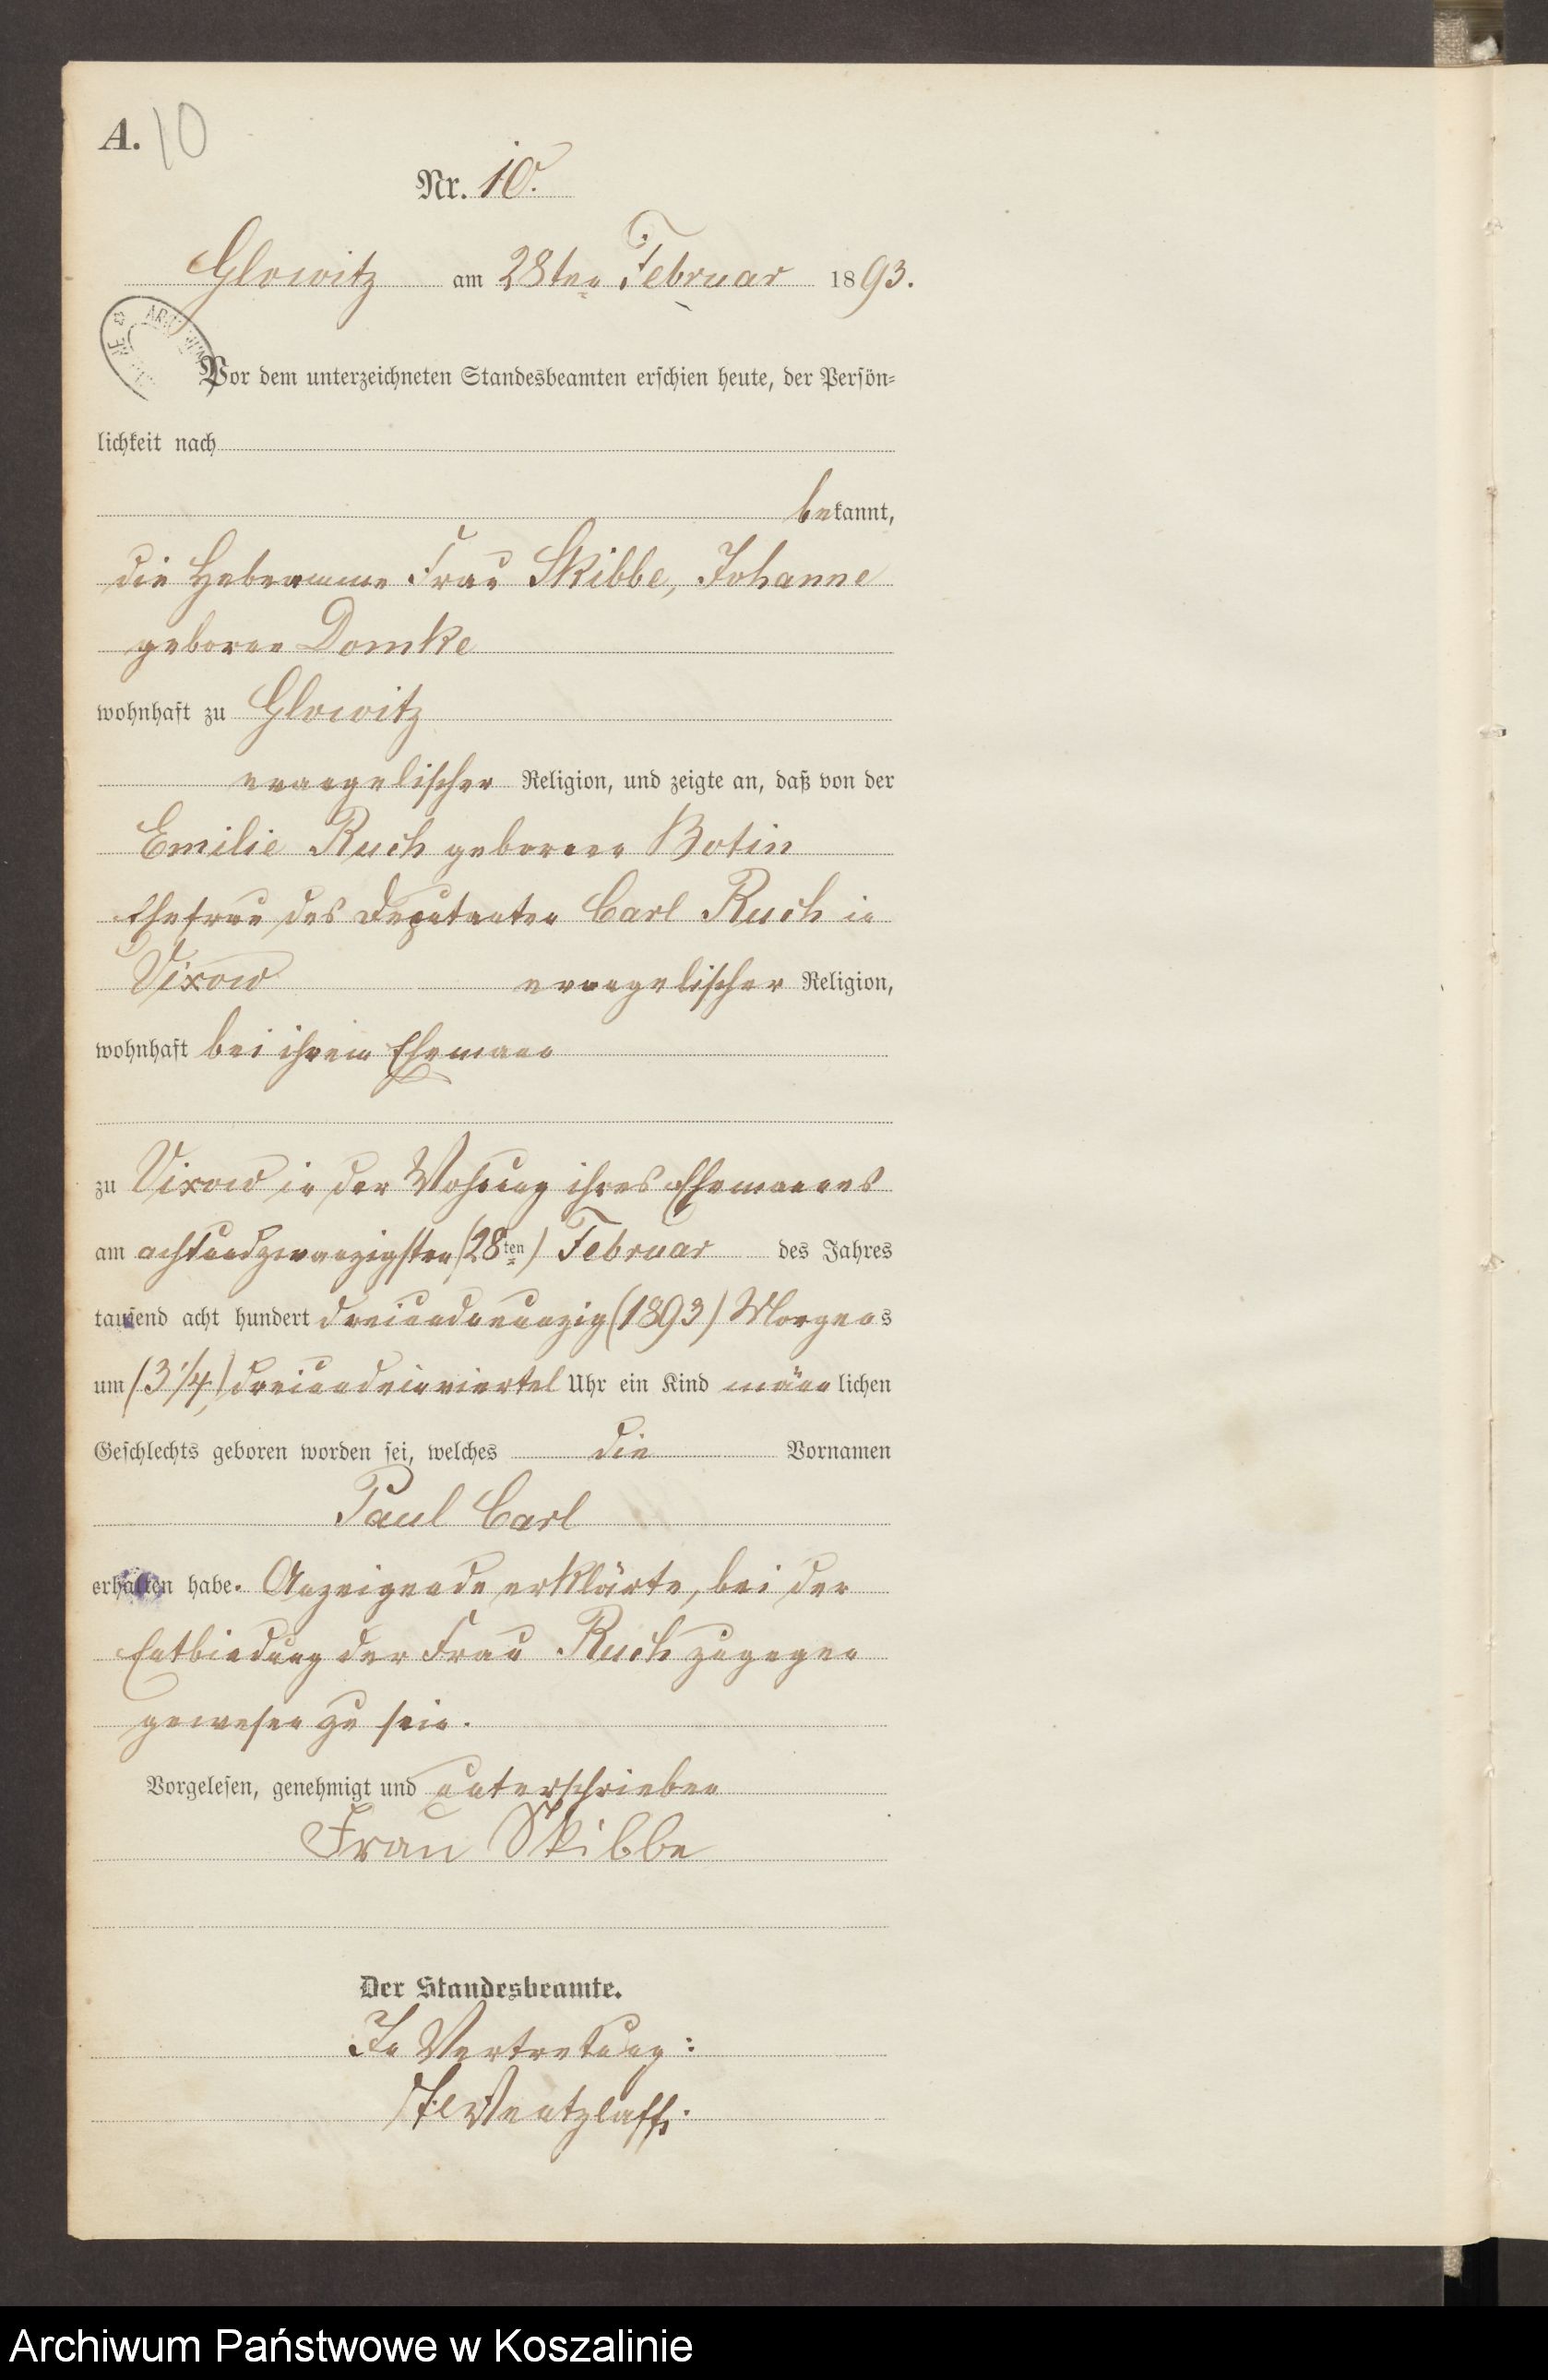 A. 10
Nr. 10.
Glowitz am 28ten Februar 1893.
Vor dem unterzeichneten Standesbeamten erschien heute, der Persön-
lichkeit nach
bekannt,
die Hebeamme Frau Skibbe, Johanne
geboren Domke
wohnhaft zu Glowitz
evangelischer Religion, und zeigte an, daß von der
Emilie Ruch geborenen Botin
Ehefrau des Deputanten Carl Ruch in
Vixow evangelischer Religion,
wohnhaft bei ihrem Ehemann
zu Vixow in der Wohnung ihres Ehemannes
am achtundzwanzigsten (28ten) Februar des Jahres
tausend acht hundert dreiundneunzig (1893) Morgens
um (3 1/4,) dreiundeinviertel Uhr ein Kind männlichen
Geschlechts geboren worden sei, welches die Vornamen
Paul Carl
erhalten habe. Anzeigende erklärte, bei der
Entbindung der Frau Ruch zugegen
gewesen zu sein.
Vorgelesen, genehmigt und unterschrieben
Frau Skibbe
Der Standesbeamte.
In Vertretung:
Wentzlaff.
Archiwum Państwowe w Koszalinie